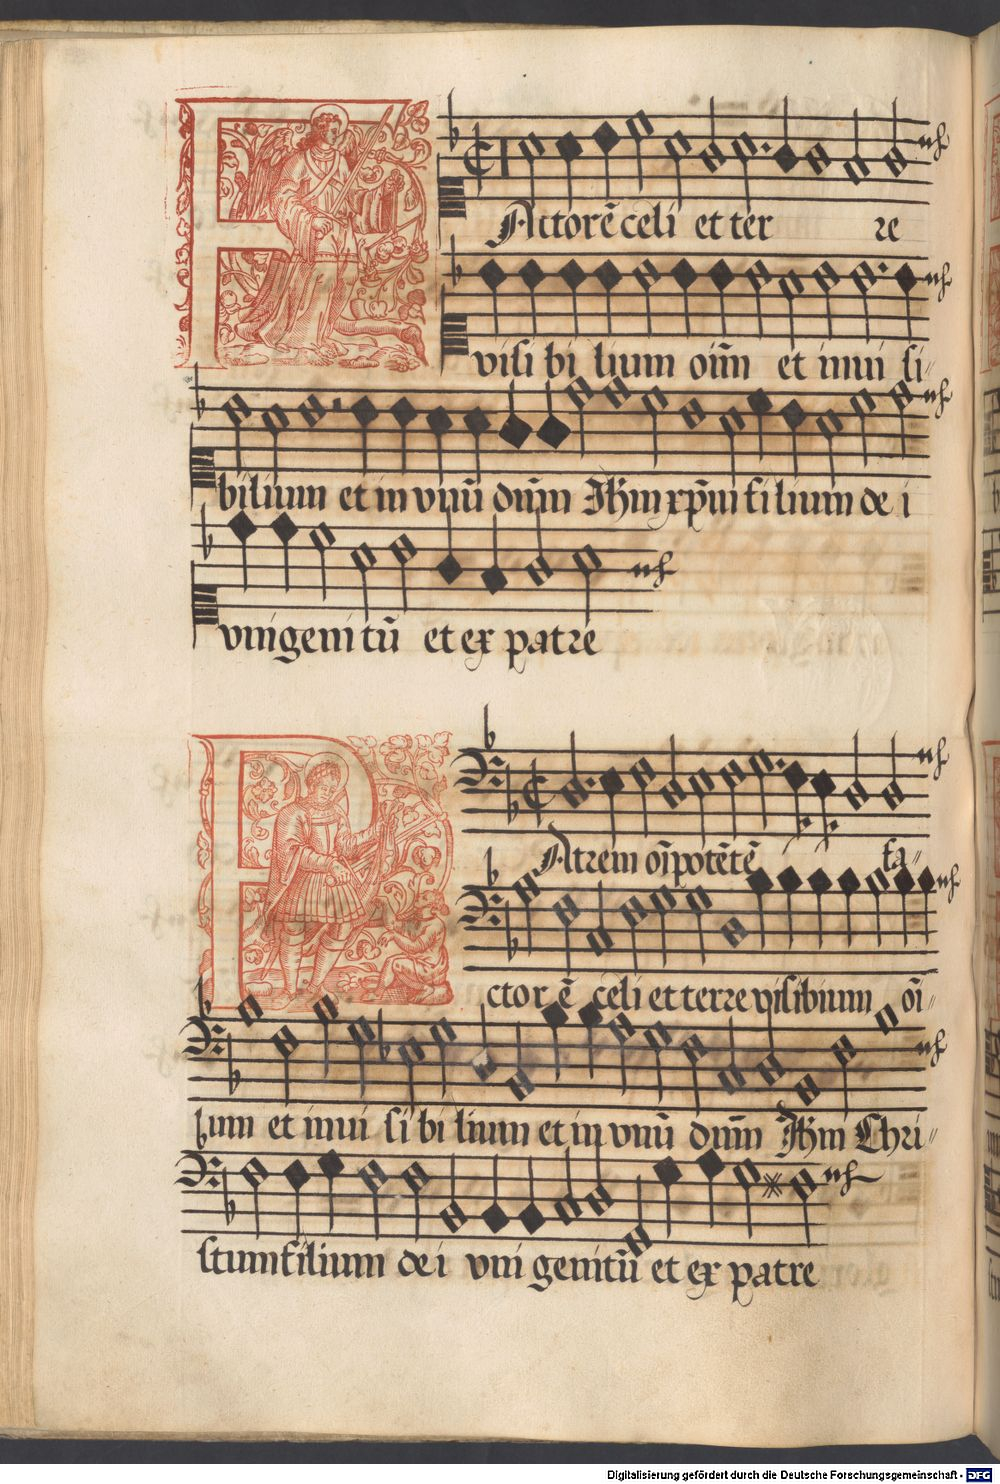 FActorē celi et ter re
visi bi lium oīm et invi si
bilium et in vnū dn̄m Jh̄m xp̄m filium de i
vnigeni tū et ex patre
PAtrem oīpotētē fa
ctor ē celi et terre visibium oī
um et invi si bi lium et in vnū dn̄m Jh̄m Chri
stum filium de i vni genitū et ex patre
Digitalisierung gefördert durch die Deutsche Forschungsgemeinschaft - DFG